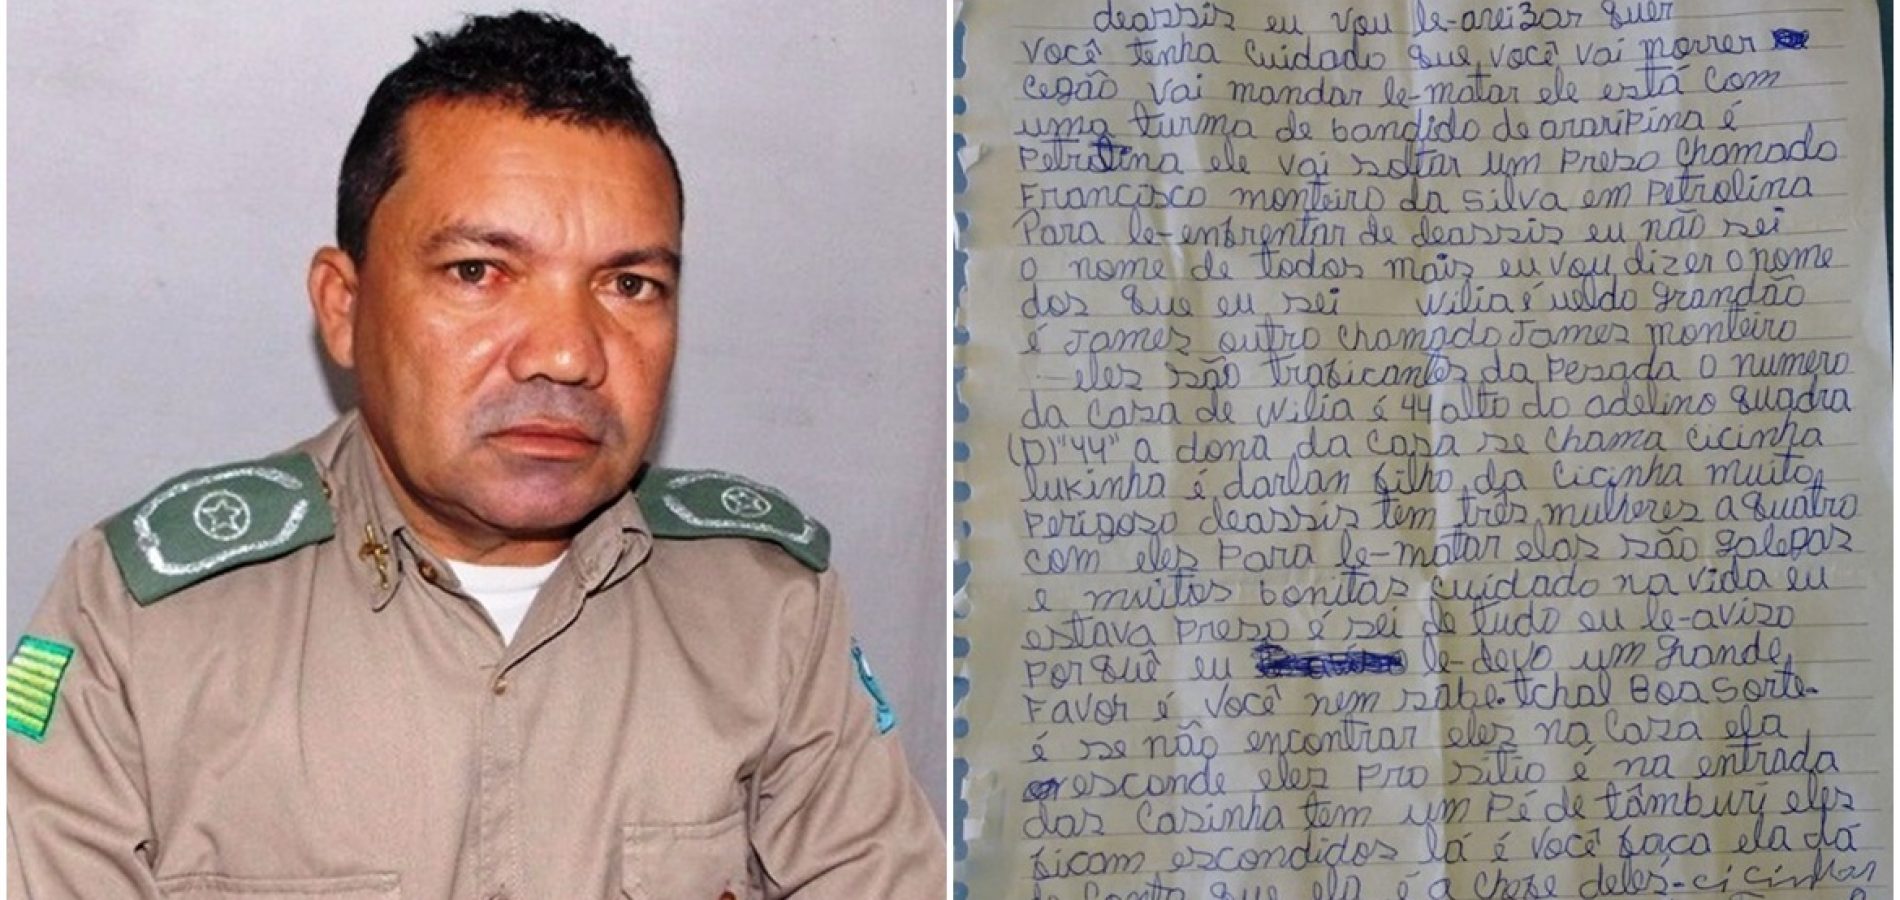 deassis eu vou le-aveizar quer
você tenha cuidado que você vai morrer
cegão vai mandar le-matar ele está com
uma turma de bandido de araripina é
Petrolina ele vai soltar um preso chamado
Francisco monteiro da silva em Petrolina
Para le-enfrentar de deassis eu não sei
o nome de todos mais eu vou dizer o nome
dos que eu sei wilia é ueldo grandão
é James outro chamado James monteiro
eles são traficantes da pesada o numero
da casa de wilia é 44 alto do adelino quadra
(D)"44" a dona da casa se chama cicinha
lukinha é darlan filho da cicinha muito
perigoso deassis tem três mulheres a quatro
com eles para le-matar elas são galegas
e muitos bonitas cuidado na vida eu
estava preso é sei de tudo eu le-aviso
porquê eu le-devo um grande
Favor é você nem sabe. tchal Boa sorte.
é se não encontrar eles na casa ela
esconde eles pro sitio é na entrada
das casinha tem um Pé de tâmburí eles
ficam escondidos lá é você faça ela dá
de conta que ela é a chefe deles-cicinha